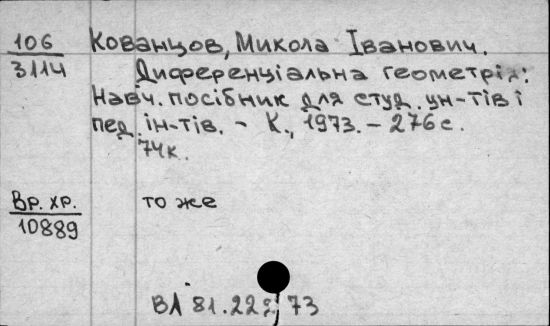 106 Кованцов, Микола Іванович.
3114 Диференціальна геометрія:
Навч. посібник для студ. ун-тів і
пед. ін-тів. - К., 1973. - 276 с.
74к.
Вр. хр. то же
10889
ВЛ 81.222 73